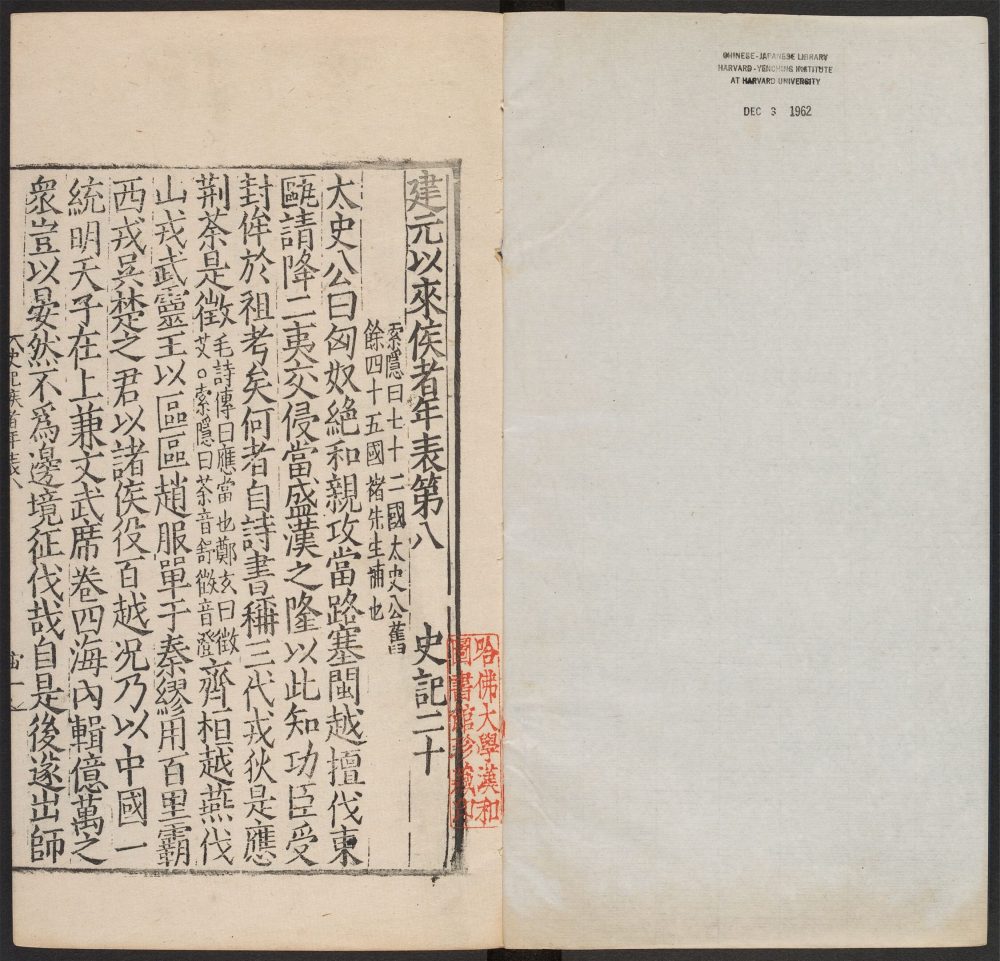 CHINESE-JAPANESE LIBRARY
HARVARD-YENCHING INSTITUTE
AT HARVARD UNIVERSITY
DEC 3 1962
建元以來侯者年表第八 史記二十
索隱曰七十二國太史公舊
餘四十五國褚先生補也
太史公曰匈奴絶和親攻當路塞閩越擅伐東
甌請降二夷交侵當盛漢之隆以此知功臣受
封侔於祖考矣何者自詩書稱三代戎狄是應
荆荼是徵毛詩傳曰應當也鄭玄曰徵
艾○索隱曰荼音舒徵音澄齊桓越燕伐
山戎武靈王以區區趙服單于秦繆用百里霸
西戎吳楚之君以諸侯役百越况乃以中國一
統明天子在上兼文武席卷四海內輯億萬之
衆豈以晏然不爲邊境征伐哉自是後遂出師
哈佛大學漢和
圖書館珍藏印